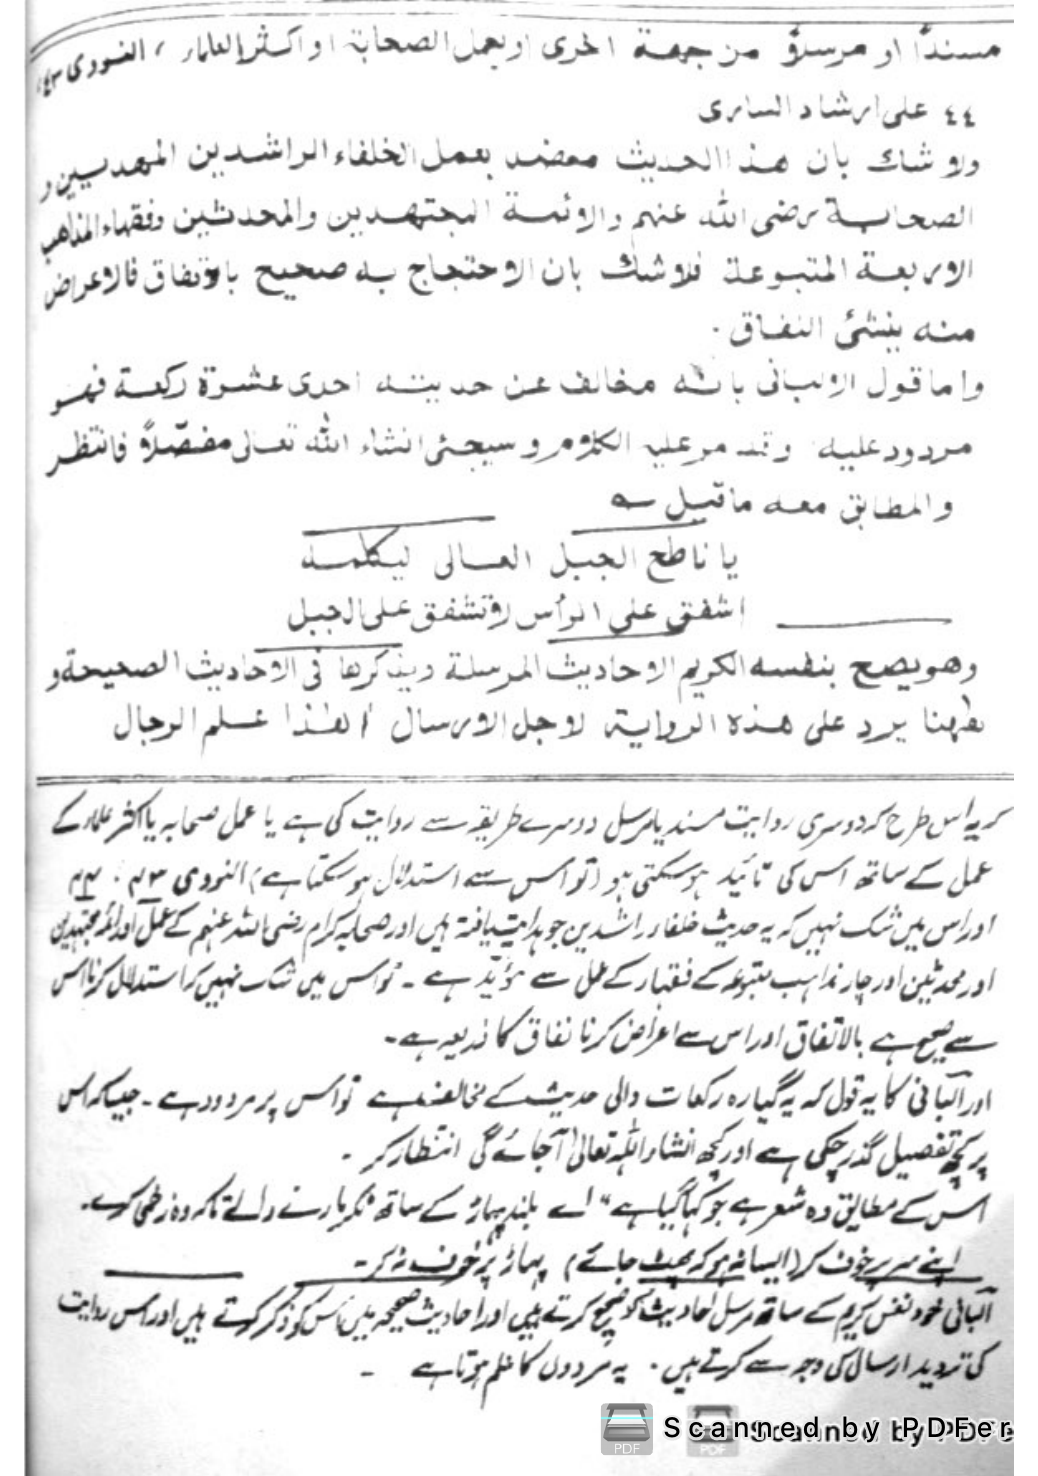 مسنداً او مرسلاً من جهة اخرى او بعمل الصحابة او اكثر العلماء ، النووى ٤٣،
٤٤ على ارشاد السارى
ولا شك بان هذا الحديث معضد بعمل الخلفاء الراشدين المهديين و
الصحابة رضى الله عنهم والائمة المجتهدين والمحدثين وفقهاء المذاهب
الاربعة المتبوعة فلا شك بان الاحتجاج به صحيح بالاتفاق فالاعراض
منه ينشئ النفاق ۔
واما قول الالبانى بانه مخالف عن حديث احدى عشرة ركعة فهو
مردود عليه وقد مر عليه الكلام و سيجئ انشاء الله تعالى مفصلاً فانتظر
والمطابق معه ما قيل ؎
يا ناطح الجبل العالى ليكلمه
اشفق على الرأس لا تشفق على الجبل
وهو يصح بنفسه الكريم الاحاديث المرسلة ويذكرها فى الاحاديث الصحيحة و
ههنا يرد على هذه الرواية لاجل الارسال أهذا علم الرجال
کر یہ اس طرح کہ دوسری روایت مسند یا مرسل دوسرے طریقہ سے روایت کی ہے یا عمل صحابہ یا اکثر علماء کے
عمل کے ساتھ اس کی تائید ہو سکتی ہو (تو اس سے استدلال ہو سکتا ہے) النووی ۴۳ ، ۴۴
اور اس میں شک نہیں کہ یہ حدیث خلفاء راشدین جو ہدایت یافتہ ہیں اور صحابہ کرام رضی اللہ عنہم کے عمل اور ائمہ مجتہدین
اور محدثین اور چار مذاہب متبوعہ کے فقہاء کے عمل سے مؤید ہے ۔ تو اس میں شک نہیں کہ استدلال کرنا اس
سے صحیح ہے بالاتفاق اور اس سے اعراض کرنا نفاق کا ذریعہ ہے۔
اور البانی کا یہ قول کہ یہ گیارہ رکعات والی حدیث کے مخالف ہے تو اس پر مردود ہے ۔ جیسا کہ اس
پر کچھ تفصیل گذر چکی ہے اور کچھ انشاء اللہ تعالیٰ آجائے گی انتظار کر ۔
اس کے مطابق وہ شعر ہے جو کہا گیا ہے " اے بلند پہاڑ کے ساتھ ٹکر مارنے والے تاکہ وہ زخمی کرے۔
اپنے سر پر خوف کر (ایسا نہ ہو کہ پھٹ جائے) پہاڑ پر خوف نہ کر۔
البانی خود نفس کریم کے ساتھ مرسل احادیث کو صحیح کرتے ہیں اور احادیث صحیحہ میں اس کو ذکر کرتے ہیں اور اس روایت
کی تردید ارسال کی وجہ سے کرتے ہیں ۔ یہ مردوں کا علم ہوتا ہے ۔
Scanned by PDFer
Scanned by PDFe